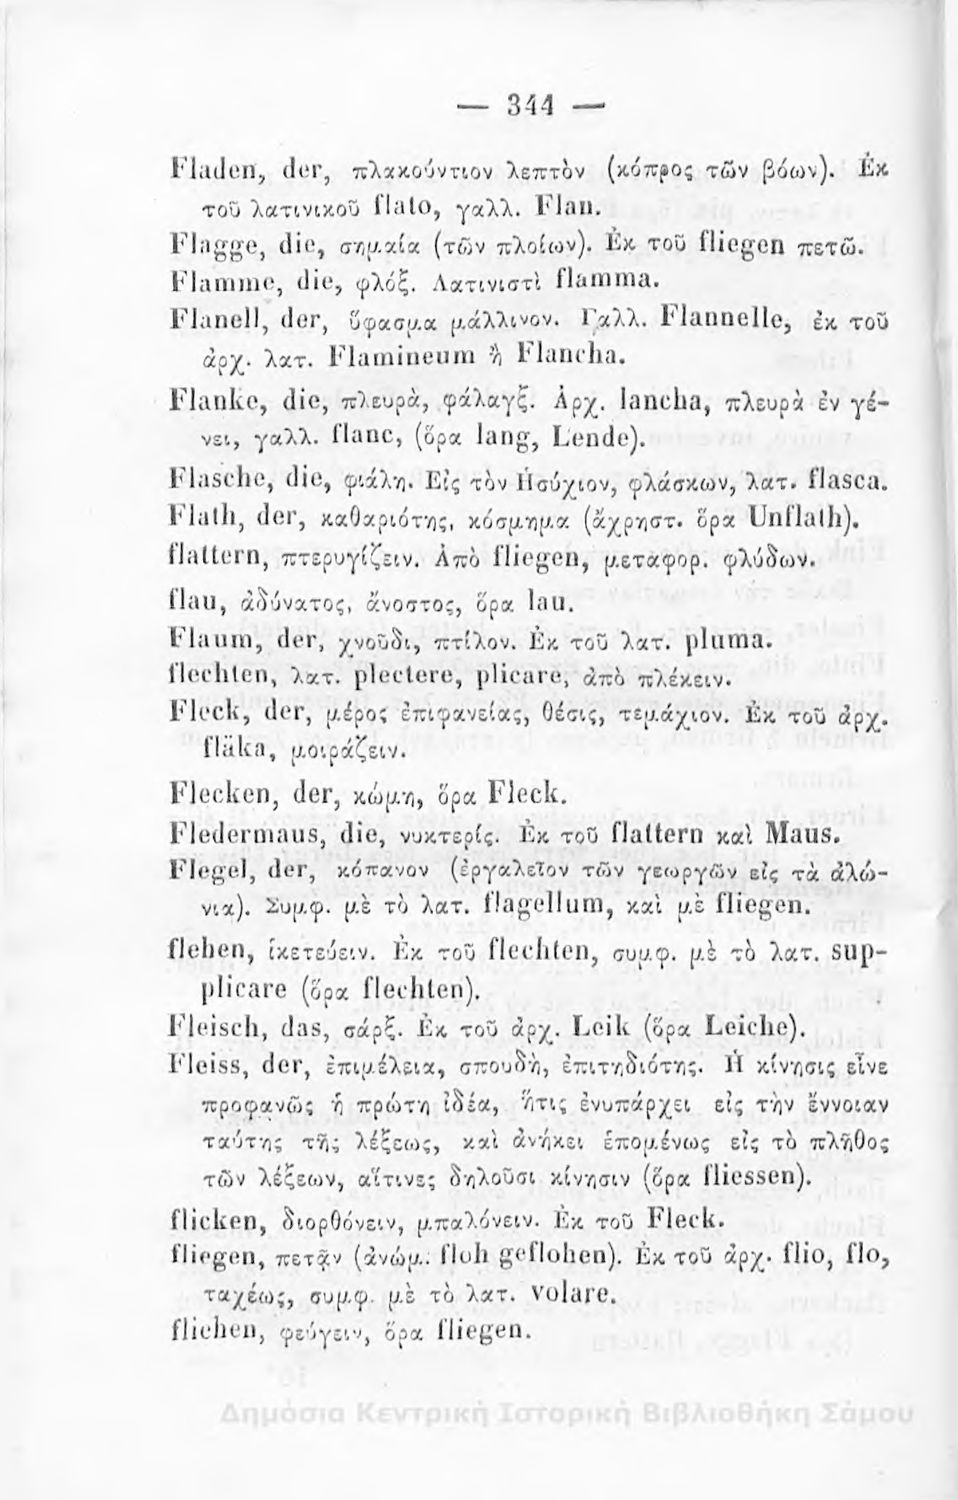 — 344 —
Fladen, der, πλακούντιον λεπτὸν (κόπρος τῶν βόων). Ἐκ
τοῦ λατινικοῦ flato, γαλλ. Flan.
Flagge, die, σημαία (τῶν πλοίων). Ἐκ τοῦ fliegen πετῶ.
Flamme, die, φλόξ. Λατινιστὶ flamma.
Flanell, der, ὕφασμα μάλλινον. Γαλλ. Flannelle, ἐκ τοῦ
ἀρχ. λατ. Flamineum ἢ Flancha.
Flanke, die, πλευρὰ, φάλαγξ. Ἀρχ. lancha, πλευρὰ ἐν γέ-
νει, γαλλ. flanc, (ὅρα lang, Lende).
Flasche, die, φιάλη. Εἰς τὸν Ἡσύχιον, φλάσκων, λατ. flasca.
Flath, der, καθαριότης, κόσμημα (ἄχρηστ. ὅρα Unflath).
flattern, πτερυγίζειν. Ἀπὸ fliegen, μεταφορ. φλύδων.
flau, ἀδύνατος, ἄνοστος, ὅρα lau.
Flaum, der, χνοῦδι, πτίλον. Ἐκ τοῦ λατ. pluma.
flechten, λατ. plectere, plicare, ἀπὸ πλέκειν.
Fleck, der, μέρος ἐπιφανείας, θέσις, τεμάχιον. Ἐκ τοῦ ἀρχ.
fläka, μοιράζειν.
Flecken, der, κώμη, ὅρα Fleck.
Fledermaus, die, νυκτερίς. Ἐκ τοῦ flattern καὶ Maus.
Flegel, der, κόπανον (ἐργαλεῖον τῶν γεωργῶν εἰς τὰ ἁλώ-
νια). Συμφ. μὲ τὸ λατ. flagellum, καὶ μὲ fliegen.
flehen, ἱκετεύειν. Ἐκ τοῦ flechten, συμφ. μὲ τὸ λατ. sup-
plicare (ὅρα flechten).
Fleisch, das, σάρξ. Ἐκ τοῦ ἀρχ. Leik (ὅρα Leiche).
Fleiss, der, ἐπιμέλεια, σπουδὴ, ἐπιτηδιότης. Ἡ κίνησις εἶνε
προφανῶς ἡ πρώτη ἰδέα, ἥτις ἐνυπάρχει εἰς τὴν ἔννοιαν
ταύτης τῆς λέξεως, καὶ ἀνήκει ἑπομένως εἰς τὸ πλῆθος
τῶν λέξεων, αἵτινες δηλοῦσι κίνησιν (ὅρα fliessen).
flicken, διορθόνειν, μπαλόνειν. Ἐκ τοῦ Fleck.
fliegen, πετᾷν (ἀνώμ.: floh geflohen). Ἐκ τοῦ ἀρχ. flio, flo,
ταχέως, συμφ. μὲ τὸ λατ. volare.
fliehen, φεύγειν, ὅρα fliegen.
Δημόσια Κεντρική Ιστορική Βιβλιοθήκη Σάμου